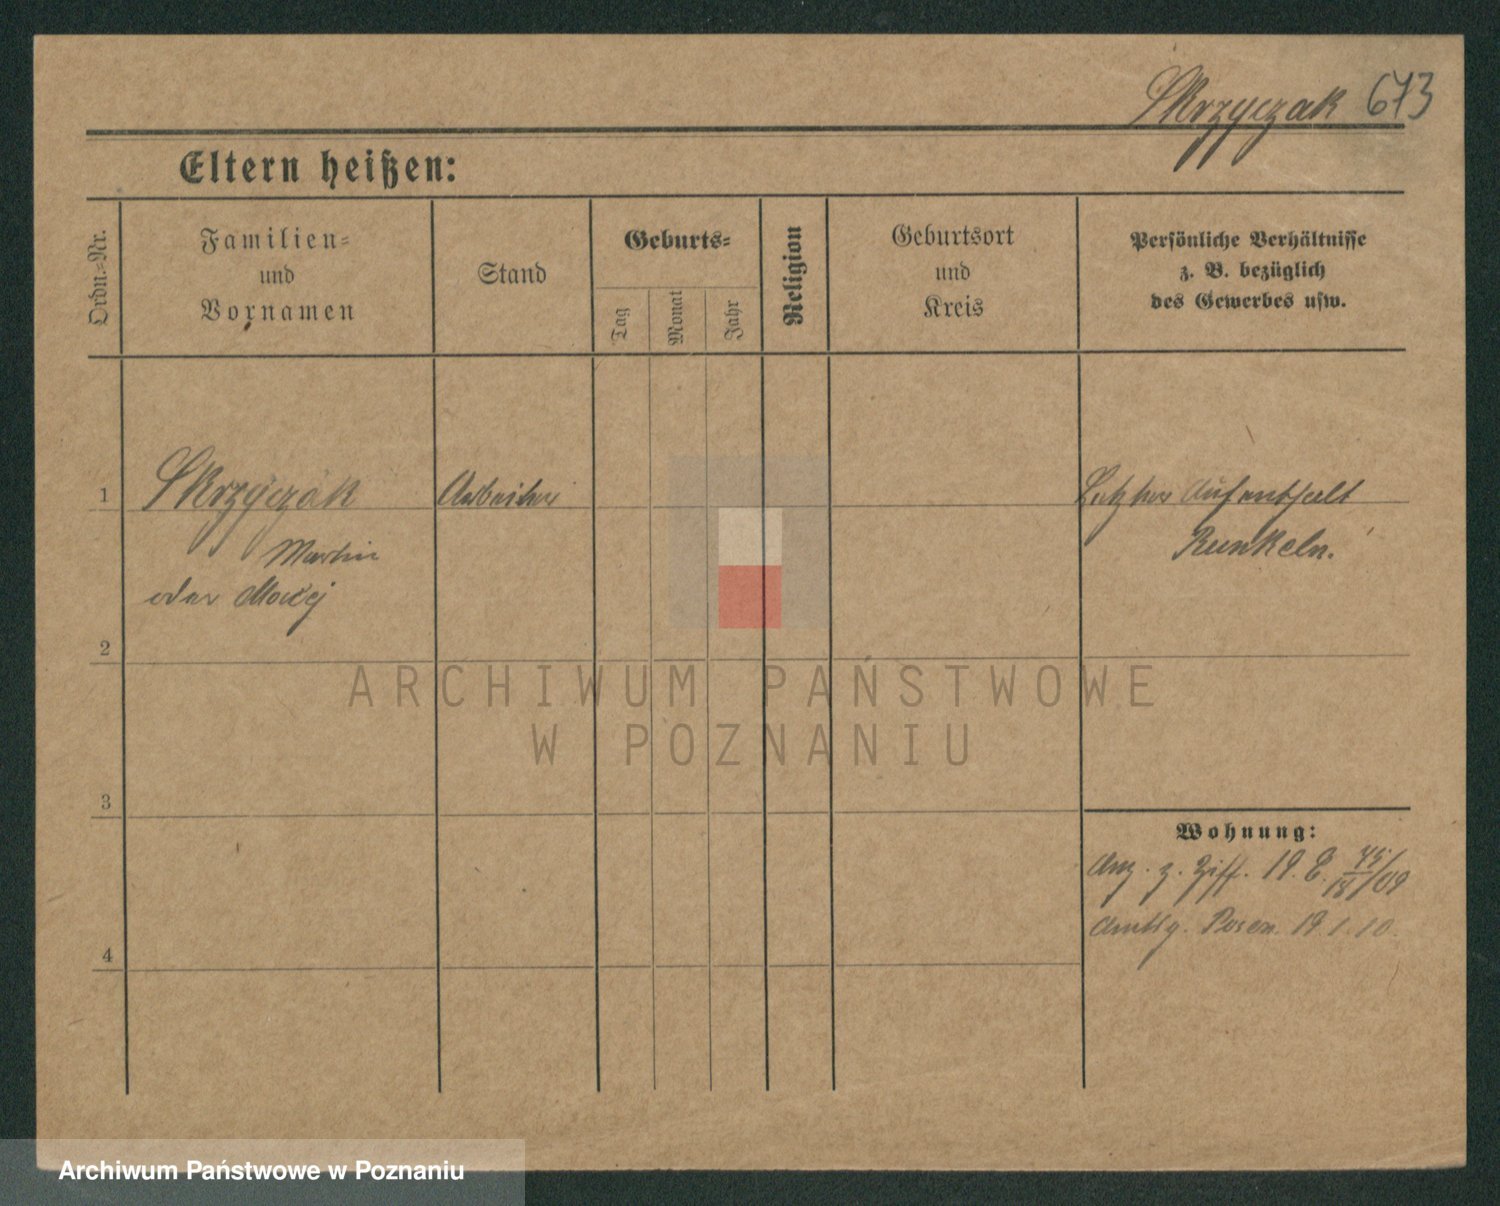 Skrzyczak 673
Eltern heißen:
Ordn.-Nr.
Familien-
und
Vornamen
Stand
Geburts-
Tag
Monat
Jahr
Religion
Geburtsort
und
Kreis
Persönliche Verhältnisse
z. B. bezüglich
des Gewerbes usw.
1
Skrzyczak
Arbeiter
Letzter Aufenthalt
Runkeln.
Martin
oder Maciej
2
ARCHIWUM PAŃSTWOWE
W POZNANIU
3
Wohnung:
Anz. z. Ziff. 19. E. /09
Posen. 19.1.10.
4
Archiwum Państwowe w Poznaniu